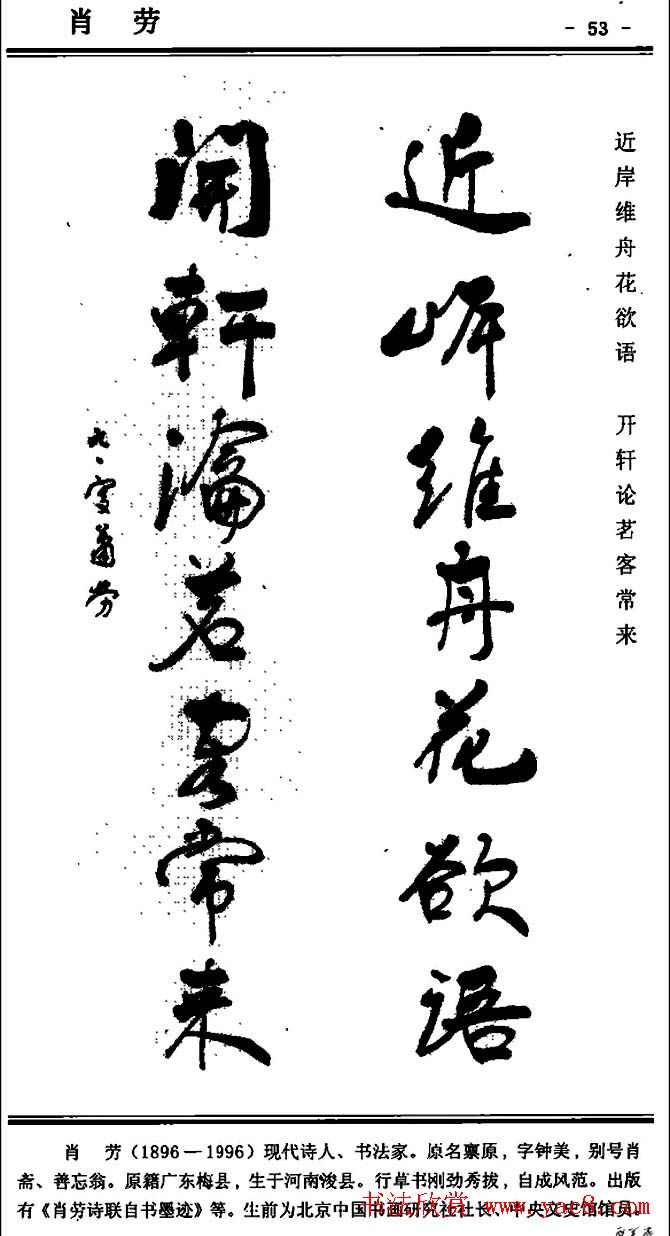 肖 劳
- 53 -
近岸维舟花欲语 开轩论茗客常来
近岸維舟花欲語
開軒瀹茗客常来
蕭劳
肖 劳(1896—1996)现代诗人、书法家。原名禀原,字钟美,别号肖
斋、善忘翁。原籍广东梅县,生于河南浚县。行草书刚劲秀拔,自成风范。出版
有《肖劳诗联自书墨迹》等。生前为北京中国书画研究社社长、中央文史馆馆员。
书法欣赏 www.yac8.com